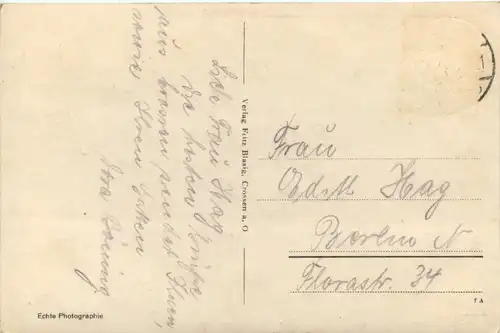 Liebe Frau Hag
die besten Grüße
aus Crossen sendet Ihnen,
sowie Ihren
Ihre
Verlag Fritz Blasig, Crossen a. O
Frau
Edith Hag
Berlin N
Florastr. 34
Echte Photographie
TA